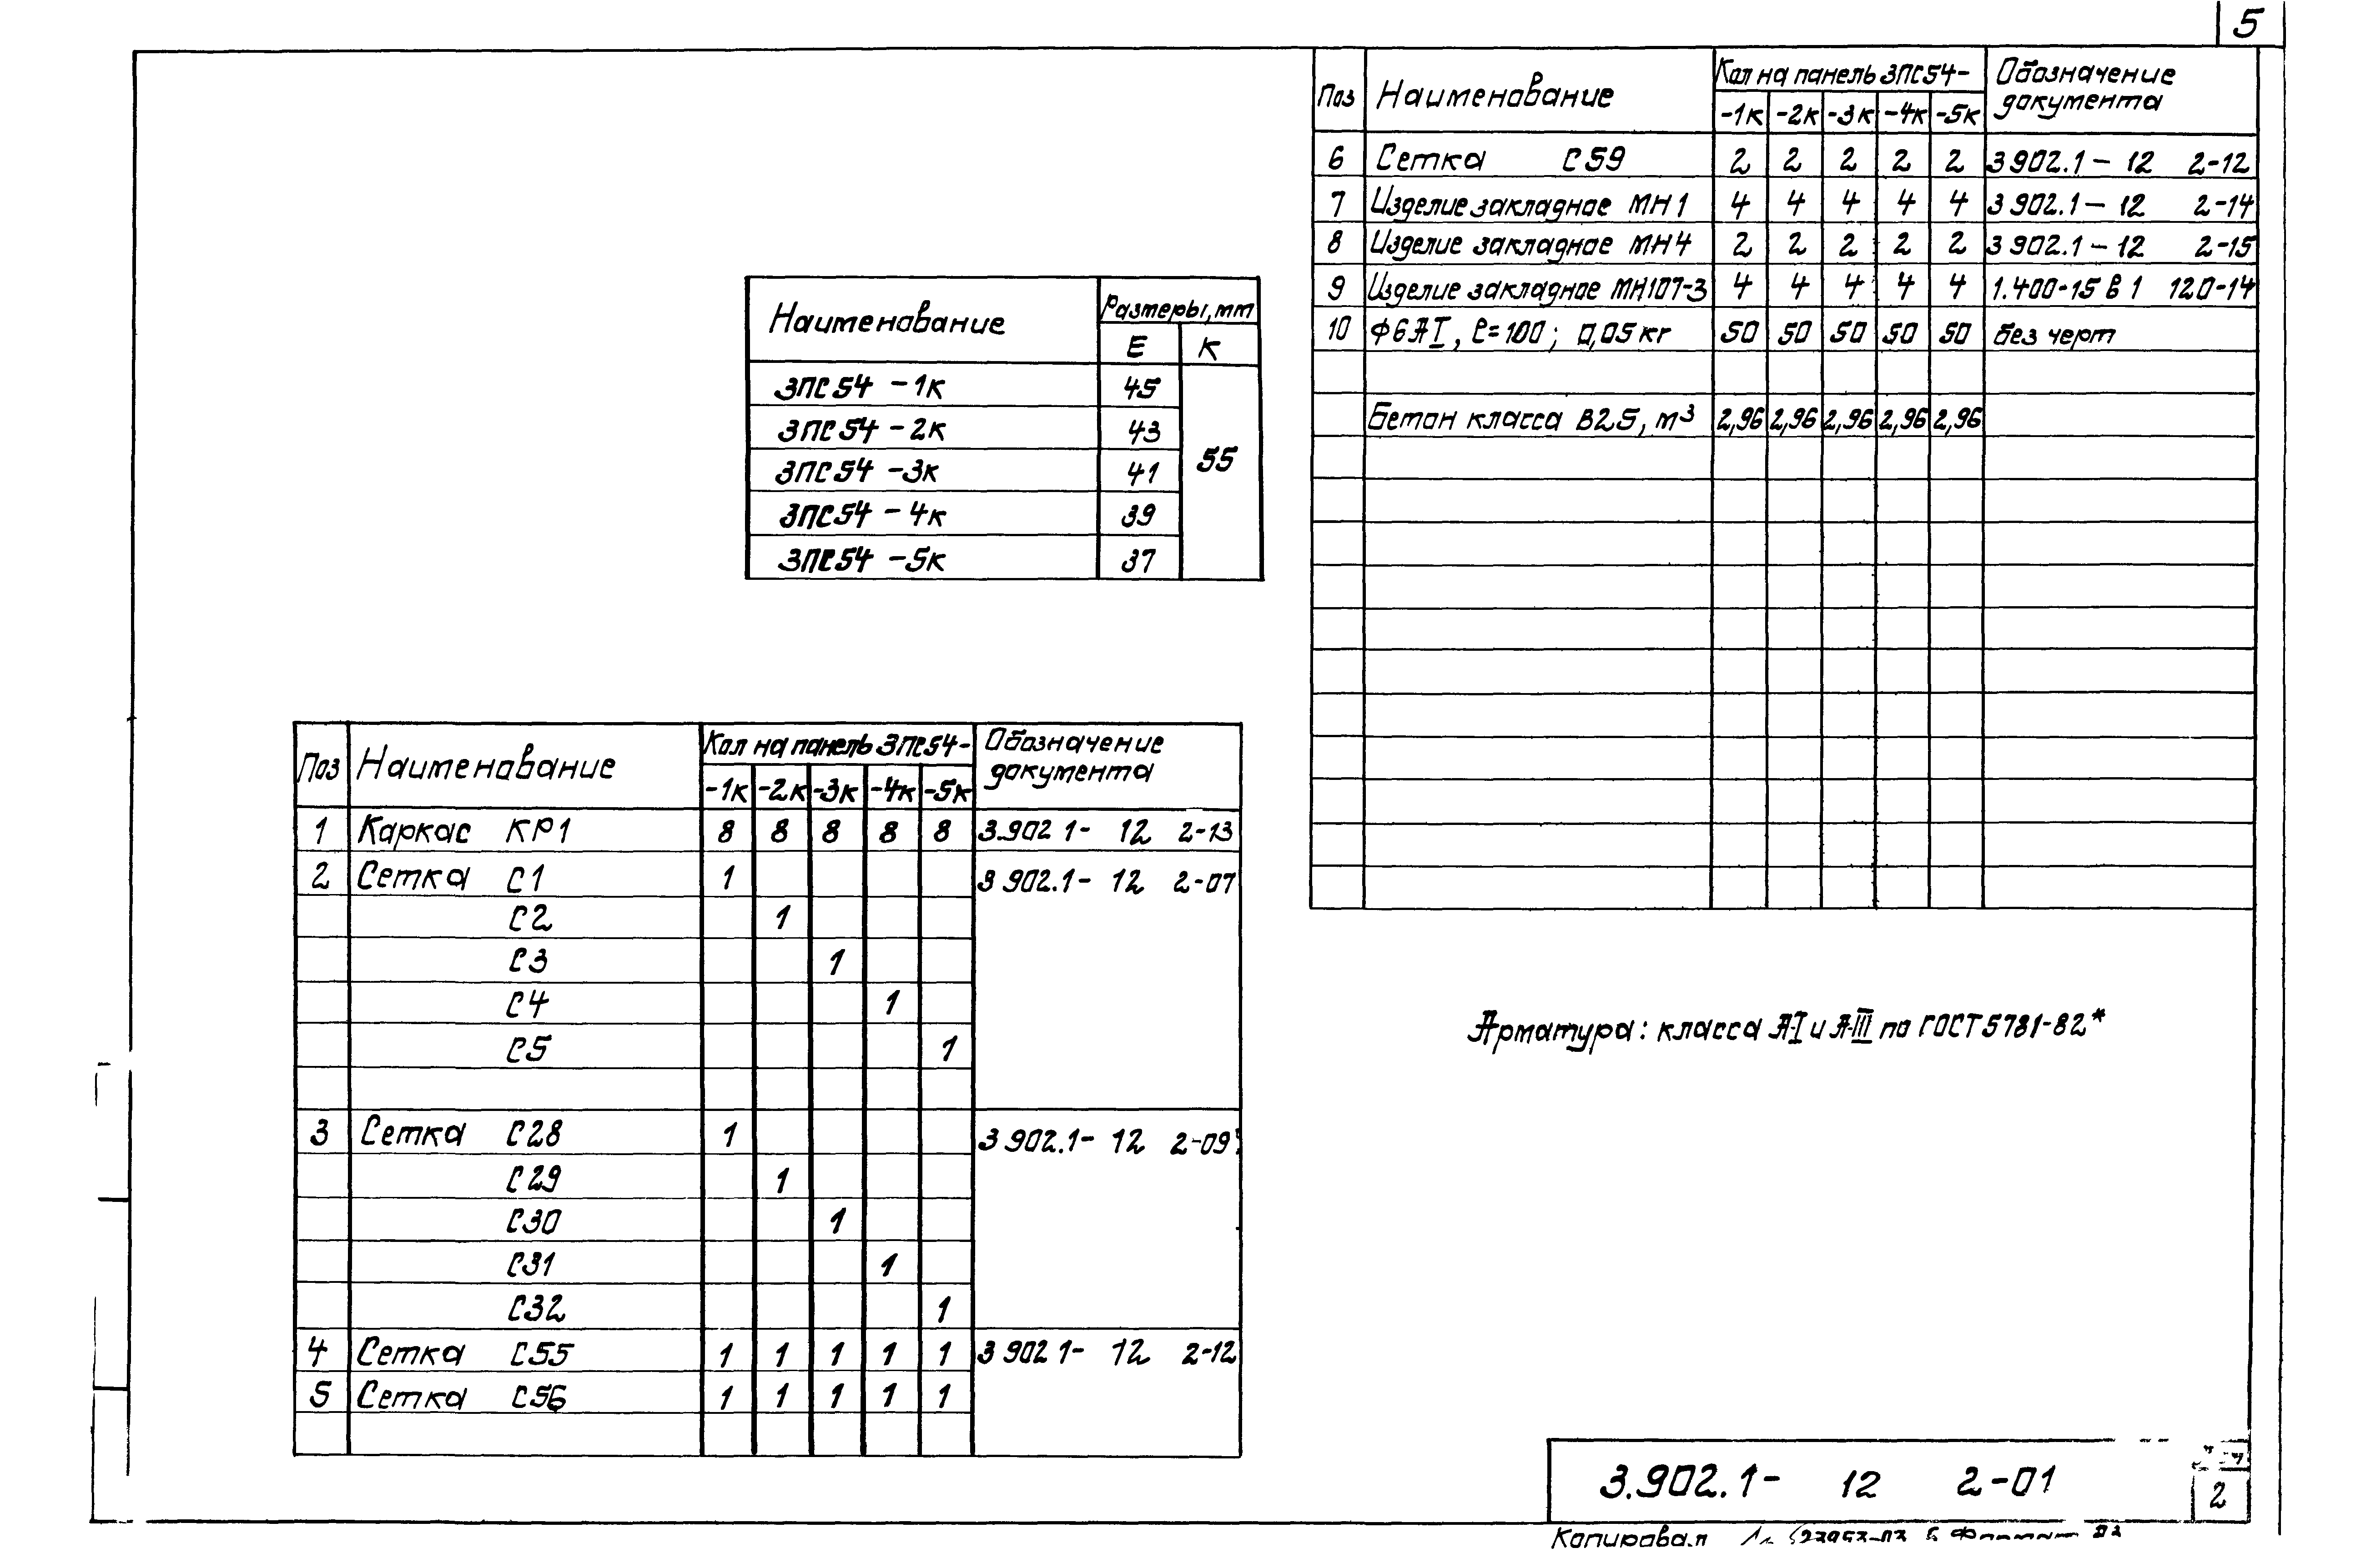 5
Наименование Размеры, мм
Е К
3ПС54 -1к 45
3ПС54 -2к 43
3ПС54 -3к 41 55
3ПС54 -4к 39
3ПС54 -5к 37
Поз Наименование Кол на панель 3ПС54- Обозначение документа
-1к -2к -3к -4к -5к
1 Каркас КР1 8 8 8 8 8 3.902 1- 12 2-13
2 Сетка С1 1 3 902.1- 12 2-07
С2 1
С3 1
С4 1
С5 1
3 Сетка С28 1 3 902.1- 12 2-09
С29 1
С30 1
С31 1
С32 1
4 Сетка С55 1 1 1 1 1 3 902 1- 12 2-12
5 Сетка С56 1 1 1 1 1
Поз Наименование Кол на панель 3ПС54- Обозначение документа
-1к -2к -3к -4к -5к
6 Сетка С59 2 2 2 2 2 3 902.1- 12 2-12
7 Изделие закладное МН1 4 4 4 4 4 3 902.1- 12 2-14
8 Изделие закладное МН4 2 2 2 2 2 3 902.1- 12 2-15
9 Изделие закладное МН107-3 4 4 4 4 4 1.400-15 В1 120-14
10 Ф6АI, ℓ=100; 0,05кг 50 50 50 50 50 без черт
Бетон класса В25, м³ 2,96 2,96 2,96 2,96 2,96
Арматура: класса А-I и А-III по ГОСТ5781-82*
3.902.1- 12 2-01
2
Копировал